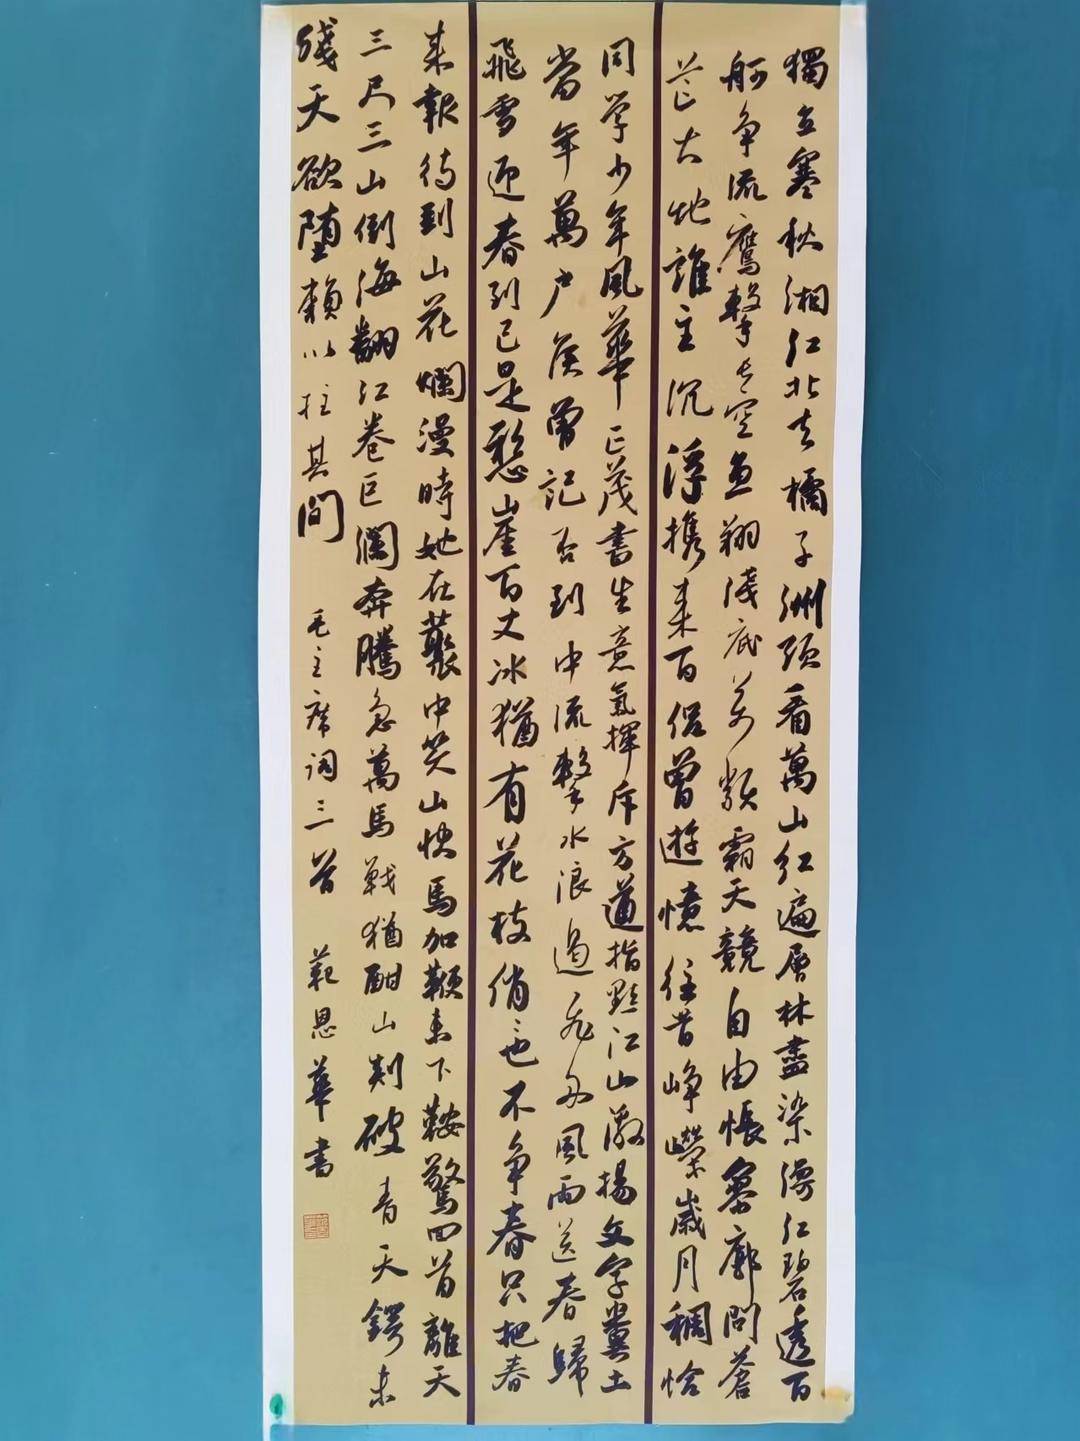 獨立寒秋湘江北去橘子洲頭看萬山紅遍層林盡染漫江碧透百
舸争流鷹擊長空魚翔淺底萬類霜天競自由悵寥廓問蒼
茫大地誰主沉浮携來百侣曾遊憶往昔崢嶸歲月稠恰
同學少年風華正茂書生意氣揮斥方遒指點江山激揚文字糞土
當年萬户侯曾記否到中流擊水浪遏飛舟風雨送春歸
飛雪迎春到已是懸崖百丈冰猶有花枝俏〻也不争春只把春
來報待到山花爛漫時她在叢中笑山快馬加鞭未下鞍驚回首離天
三尺三山倒海翻江卷巨瀾奔騰急萬馬戰猶酣山刺破青天鍔未
殘天欲墮賴以拄其間 毛主席詞三首 範恩華書